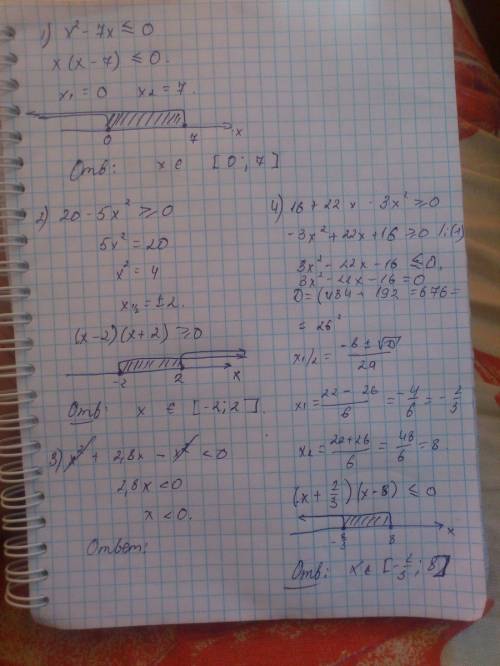 1) x² - 7x ≤ 0
x(x-7) ≤ 0.
x₁ = 0 x₂ = 7.
0 7 x
Отв: x ∈ [0; 7]
2) 20 - 5x² ≥ 0
5x² = 20
x² = 4
x₁,₂ = ±2.
(x-2)(x+2) ≥ 0
-2 2 x
Отв: x ∈ [-2; 2].
3) x² + 2,8x - x² < 0
2,8x < 0
x < 0.
Ответ:
4) 16 + 22x - 3x² ≥ 0
-3x² + 22x + 16 ≥ 0
3x² - 22x - 16 ≤ 0.
3x² - 22x - 16 = 0
D = 484 + 192 = 676 =
= 26²
x₁/₂ = (-b ± √D)/2a
x₁ = (22 - 26)/6 = -4/6 = -2/3
x₂ = (22+26)/6 = 48/6 = 8.
(x + 2/3)(x-8) ≤ 0
8 x
Отв: x ∈ [-2/3; 8]